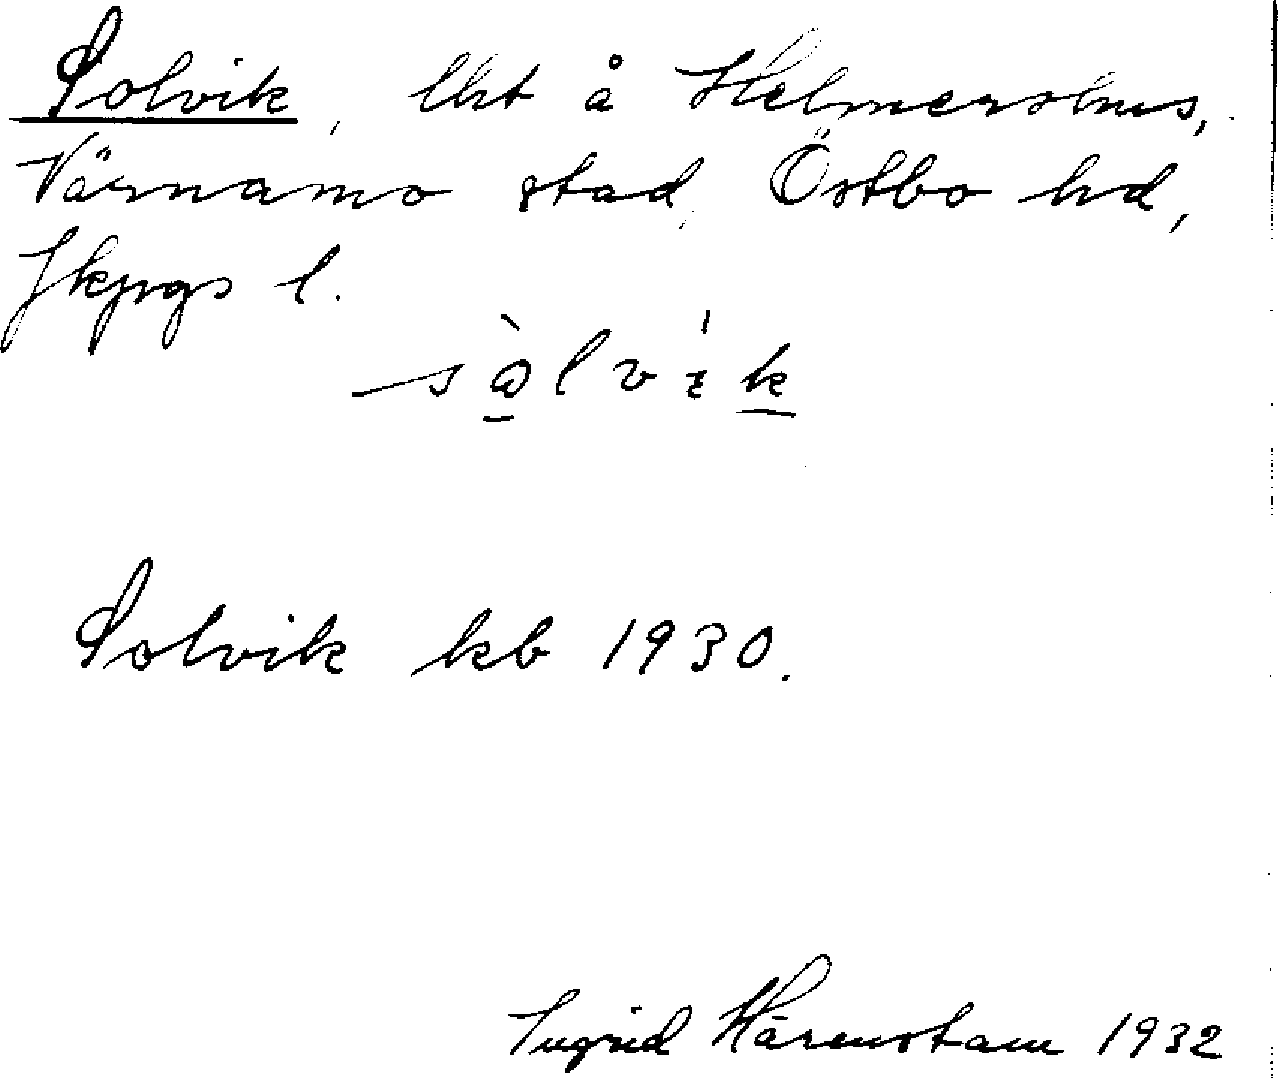 Solvik, lht å Helmershus,
Värnamo stad, Östbo hd,
Jkpgs l.
sòlvık
Solvik kb 1930.
Ingrid Härenstam 1932